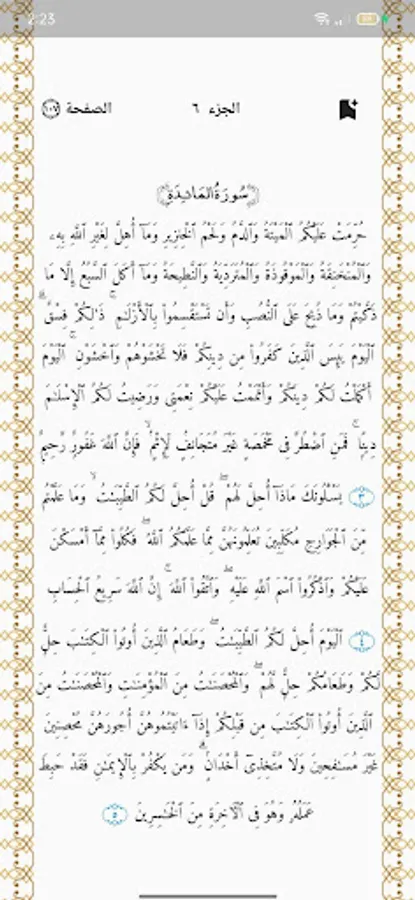 2:23
الصفحة ١٠٧ الجزء ٦
سُورَةُ المَائِدَةِ
حُرِّمَتْ عَلَيْكُمُ ٱلْمَيْتَةُ وَٱلدَّمُ وَلَحْمُ ٱلْخِنزِيرِ وَمَآ أُهِلَّ لِغَيْرِ ٱللَّهِ بِهِۦ
وَٱلْمُنْخَنِقَةُ وَٱلْمَوْقُوذَةُ وَٱلْمُتَرَدِّيَةُ وَٱلنَّطِيحَةُ وَمَآ أَكَلَ ٱلسَّبُعُ إِلَّا مَا
ذَكَّيْتُمْ وَمَا ذُبِحَ عَلَى ٱلنُّصُبِ وَأَن تَسْتَقْسِمُوا۟ بِٱلْأَزْلَـٰمِ ۚ ذَٰلِكُمْ فِسْقٌ ۗ
ٱلْيَوْمَ يَئِسَ ٱلَّذِينَ كَفَرُوا۟ مِن دِينِكُمْ فَلَا تَخْشَوْهُمْ وَٱخْشَوْنِ ۚ ٱلْيَوْمَ
أَكْمَلْتُ لَكُمْ دِينَكُمْ وَأَتْمَمْتُ عَلَيْكُمْ نِعْمَتِى وَرَضِيتُ لَكُمُ ٱلْإِسْلَـٰمَ
دِينًا ۚ فَمَنِ ٱضْطُرَّ فِى مَخْمَصَةٍ غَيْرَ مُتَجَانِفٍ لِّإِثْمٍ ۙ فَإِنَّ ٱللَّهَ غَفُورٌ رَّحِيمٌ
٣ يَسْـَٔلُونَكَ مَاذَآ أُحِلَّ لَهُمْ ۖ قُلْ أُحِلَّ لَكُمُ ٱلطَّيِّبَـٰتُ ۙ وَمَا عَلَّمْتُم
مِّنَ ٱلْجَوَارِحِ مُكَلِّبِينَ تُعَلِّمُونَهُنَّ مِمَّا عَلَّمَكُمُ ٱللَّهُ ۖ فَكُلُوا۟ مِمَّآ أَمْسَكْنَ
عَلَيْكُمْ وَٱذْكُرُوا۟ ٱسْمَ ٱللَّهِ عَلَيْهِ ۖ وَٱتَّقُوا۟ ٱللَّهَ ۚ إِنَّ ٱللَّهَ سَرِيعُ ٱلْحِسَابِ
٤ ٱلْيَوْمَ أُحِلَّ لَكُمُ ٱلطَّيِّبَـٰتُ ۖ وَطَعَامُ ٱلَّذِينَ أُوتُوا۟ ٱلْكِتَـٰبَ حِلٌّ
لَّكُمْ وَطَعَامُكُمْ حِلٌّ لَّهُمْ ۖ وَٱلْمُحْصَنَـٰتُ مِنَ ٱلْمُؤْمِنَـٰتِ وَٱلْمُحْصَنَـٰتُ مِنَ
ٱلَّذِينَ أُوتُوا۟ ٱلْكِتَـٰبَ مِن قَبْلِكُمْ إِذَآ ءَاتَيْتُمُوهُنَّ أُجُورَهُنَّ مُحْصِنِينَ
غَيْرَ مُسَـٰفِحِينَ وَلَا مُتَّخِذِىٓ أَخْدَانٍ ۗ وَمَن يَكْفُرْ بِٱلْإِيمَـٰنِ فَقَدْ حَبِطَ
عَمَلُهُۥ وَهُوَ فِى ٱلْـَٔاخِرَةِ مِنَ ٱلْخَـٰسِرِينَ ٥